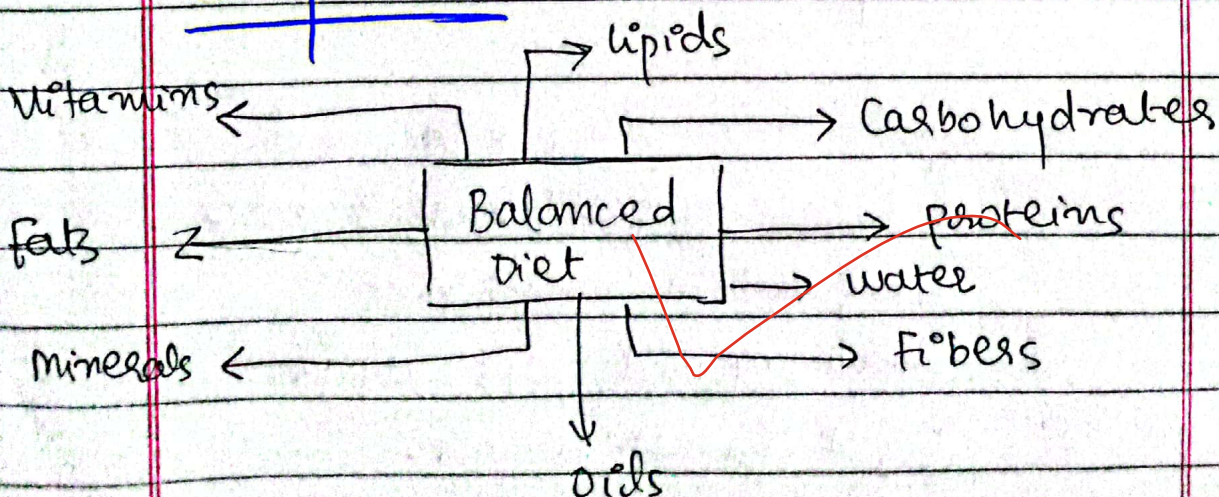 Lipids
Vitamins
Carbohydrates
Balanced
Diet
Fats
proteins
water
Minerals
Fibers
oils